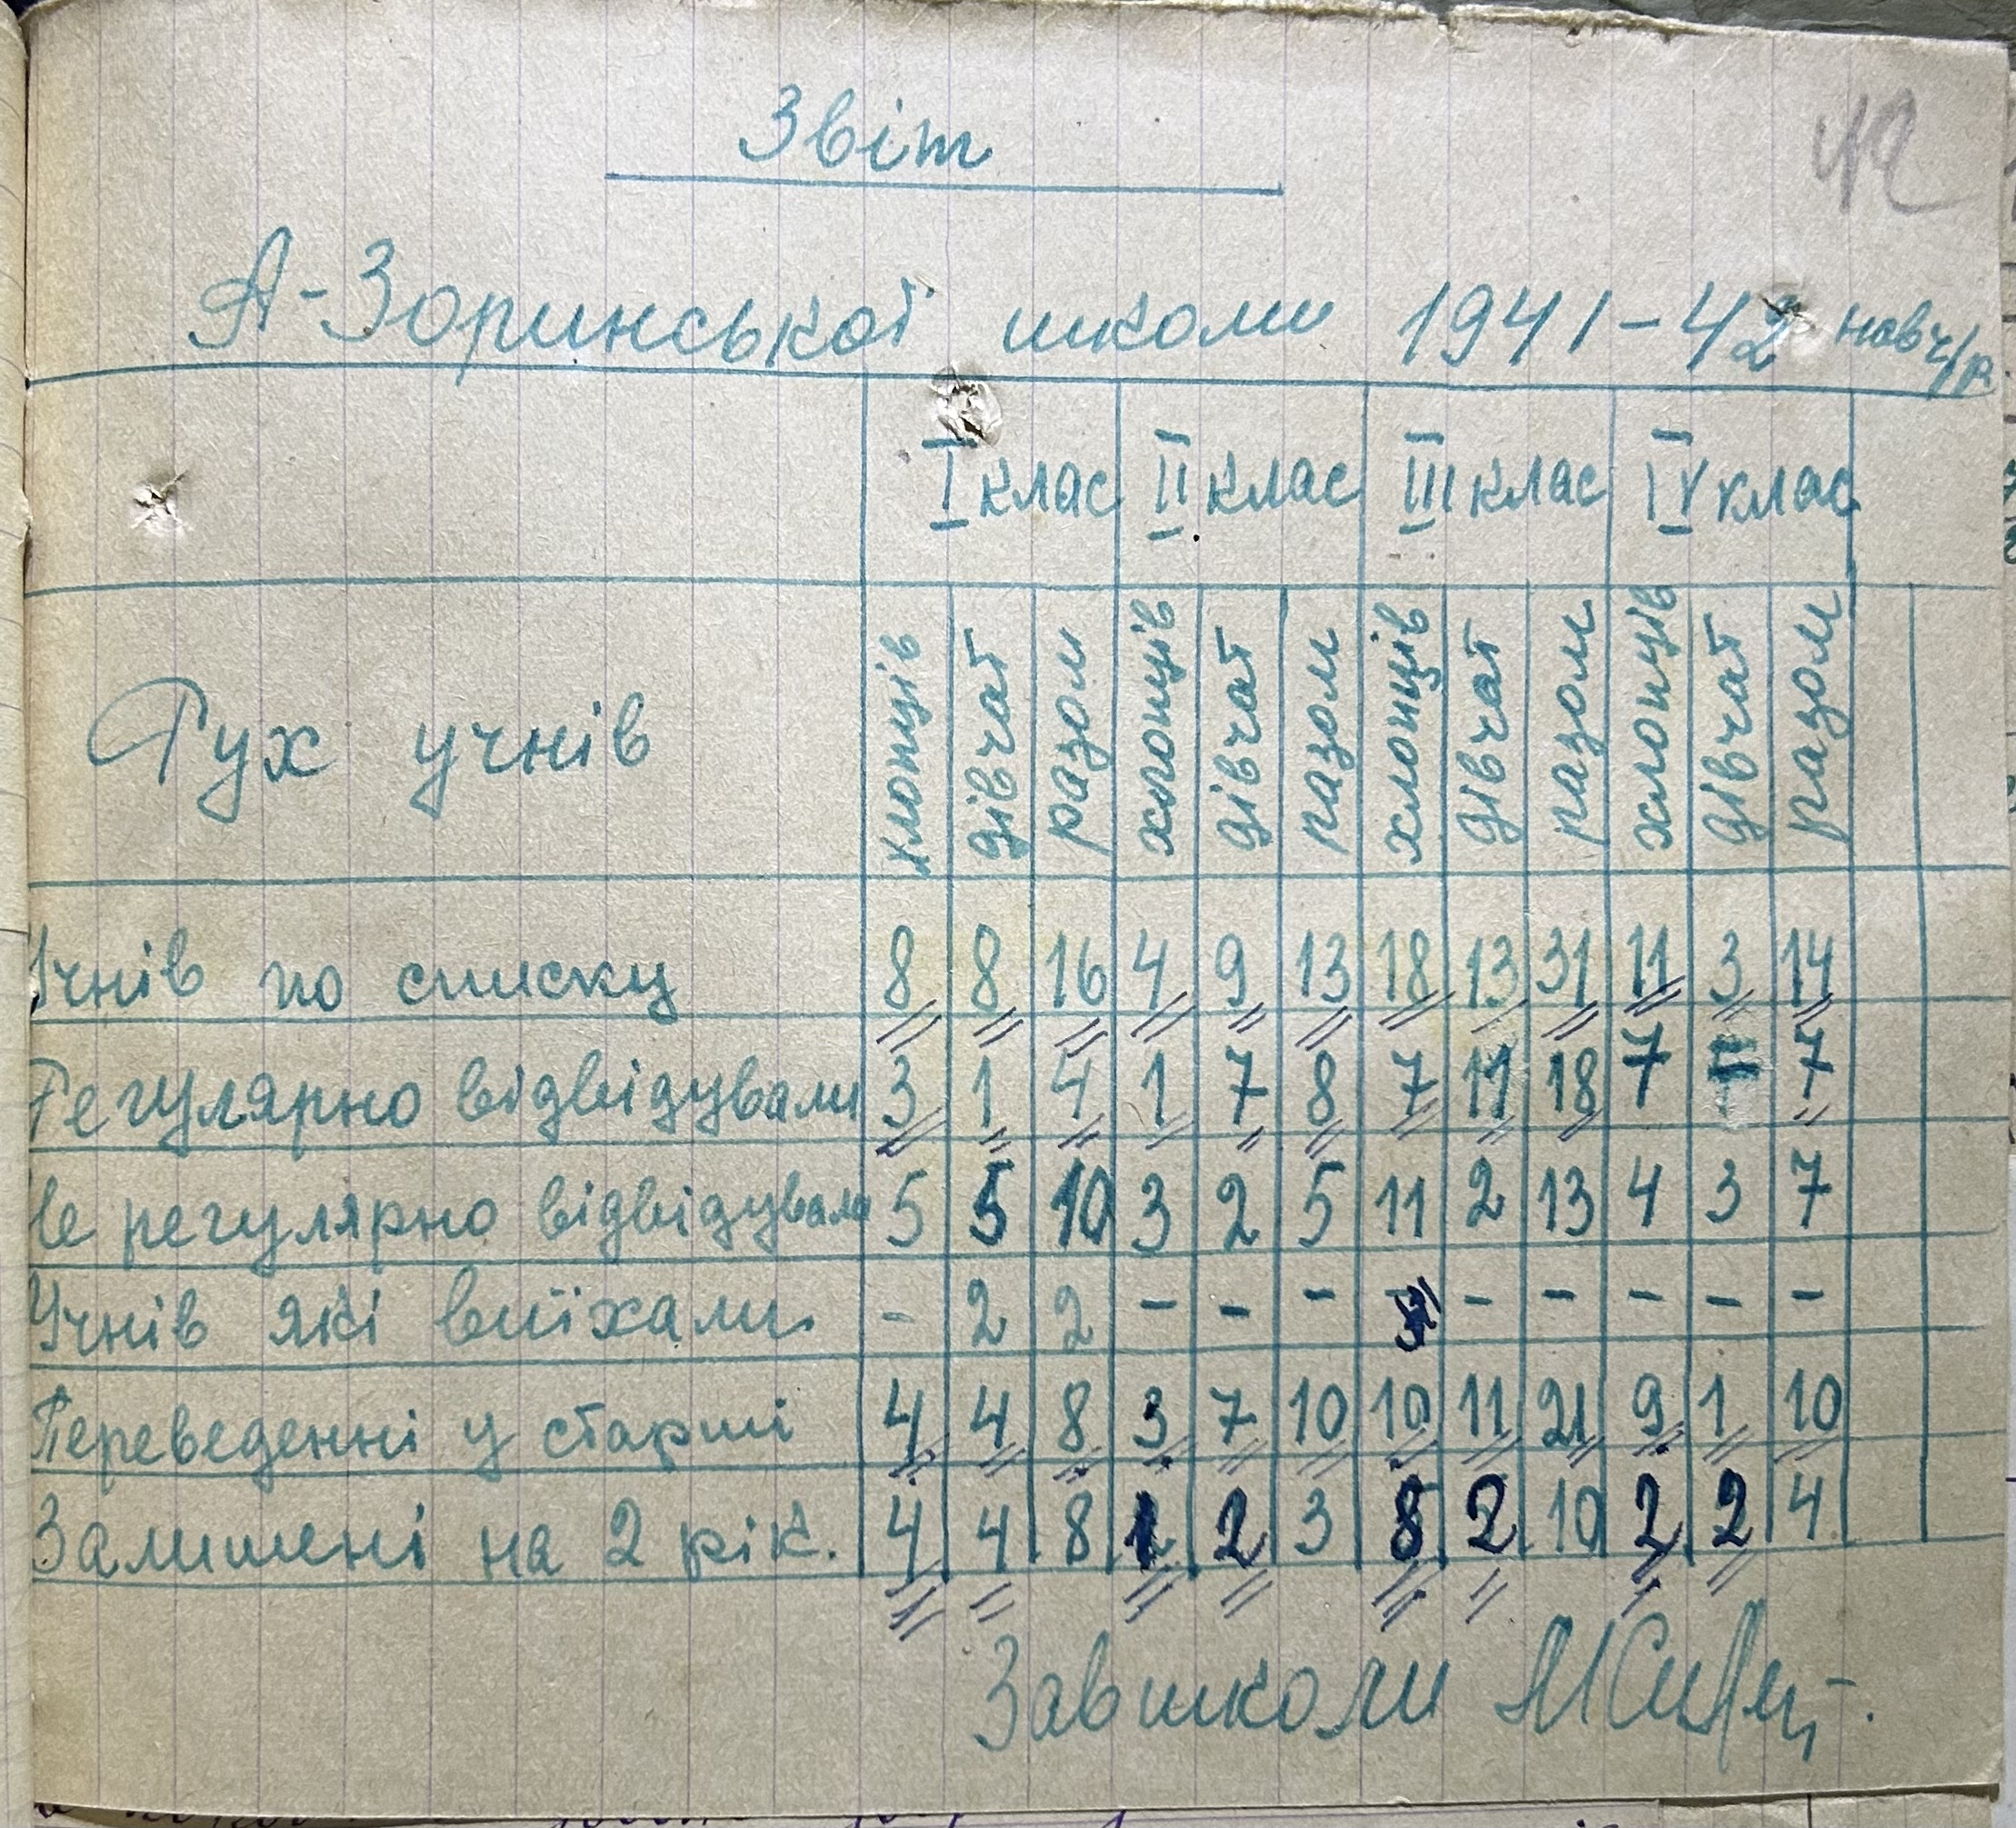 42
Звіт
А-Зоринської школи 1941-42 навч/р.
I клас II клас III клас IV клас
Рух учнів хлопців дівчат разом хлопців дівчат разом хлопців дівчат разом хлопців дівчат разом
Учнів по списку 8 8 16 4 9 13 18 13 31 11 3 14
Регулярно відвідували 3 1 4 1 7 8 7 11 18 7 - 7
Не регулярно відвідували 5 5 10 3 2 5 11 2 13 4 3 7
Учнів які виїхали - 2 2 - - - - - - - -
Переведенні у старші 4 4 8 3 7 10 10 11 21 9 1 10
Залишені на 2 рік. 4 4 8 1 2 3 8 2 10 2 2 4
Завшколи